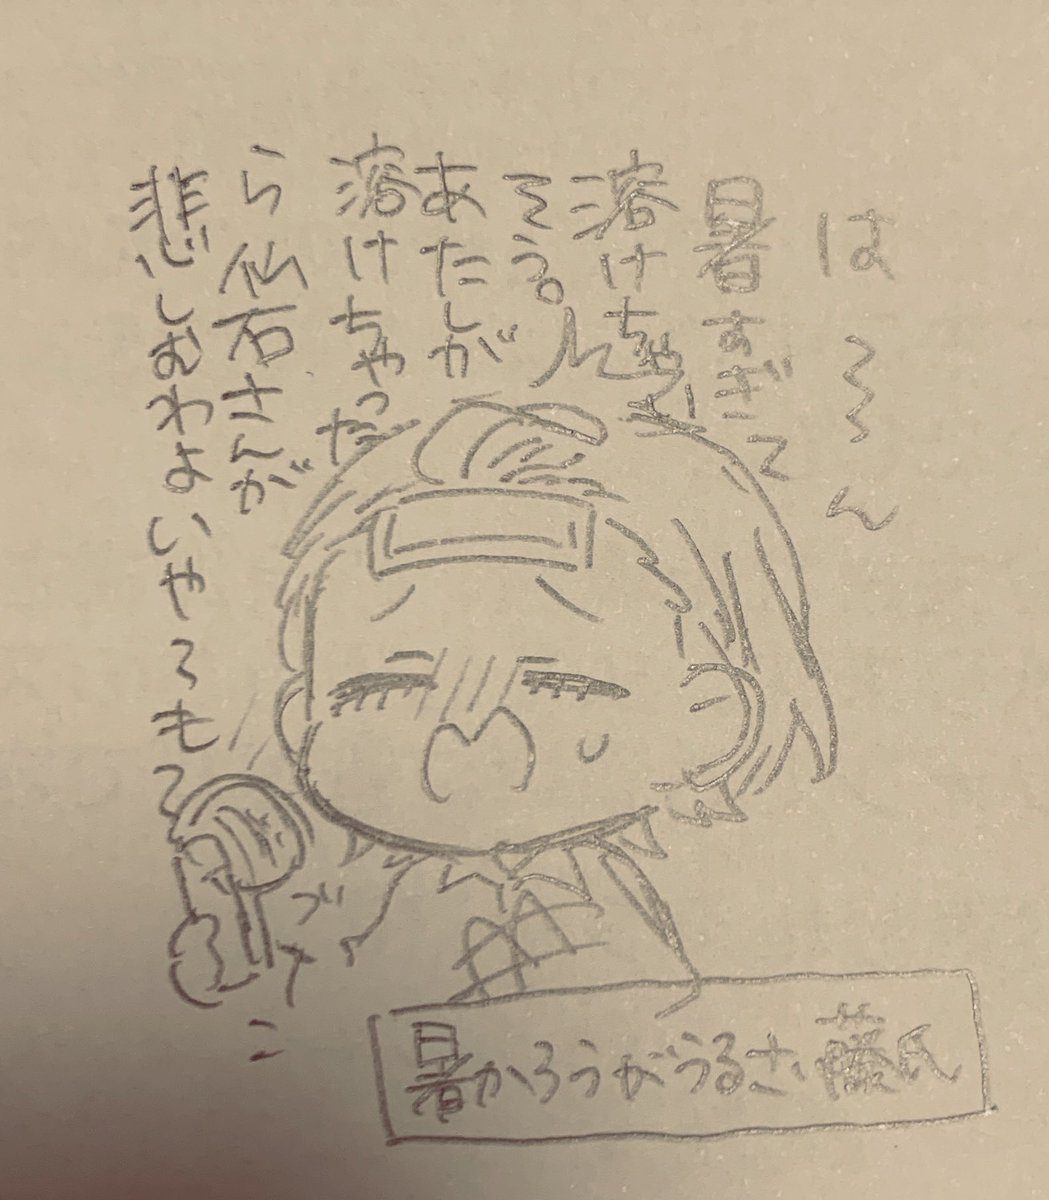 は〜〜ん
暑すぎて
溶けちゃい
そう。
あたしが
溶けちゃった
ら仙石さんが
悲しむわよいや
暑かろうがうるさい藤氏